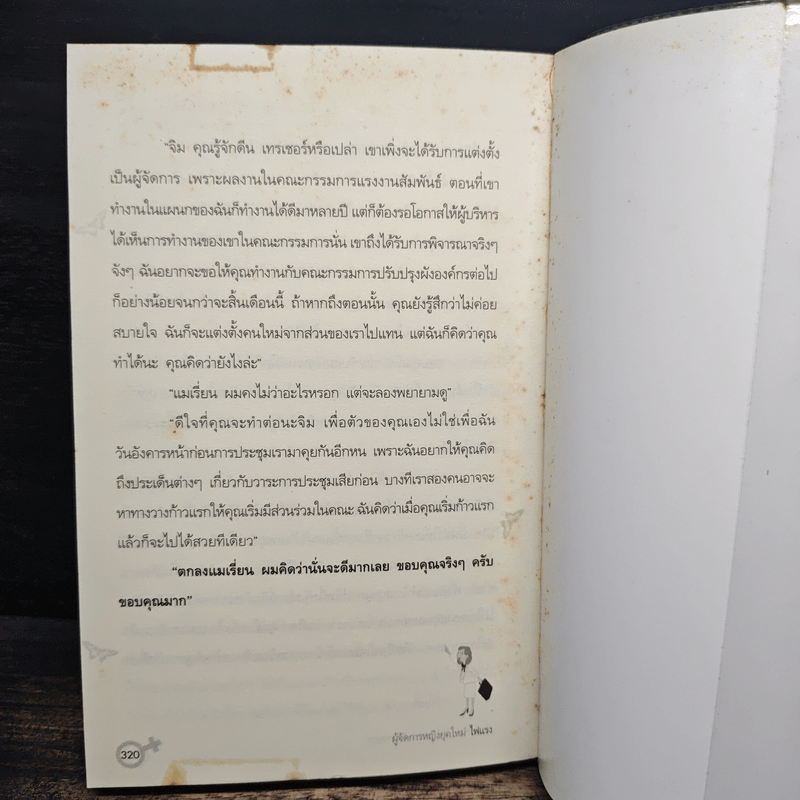 "จิม คุณรู้จักดีน เทรเซอร์หรือเปล่า เขาเพิ่งจะได้รับการแต่งตั้ง
เป็นผู้จัดการ เพราะผลงานในคณะกรรมการแรงงานสัมพันธ์ ตอนที่เขา
ทำงานในแผนกของฉันก็ทำงานได้ดีมาหลายปี แต่ก็ต้องรอโอกาสให้ผู้บริหาร
ได้เห็นการทำงานของเขาในคณะกรรมการนั่น เขาถึงได้รับการพิจารณาจริงๆ
จังๆ ฉันอยากจะขอให้คุณทำงานกับคณะกรรมการปรับปรุงผังองค์กรต่อไป
ก็อย่างน้อยจนกว่าจะสิ้นเดือนนี้ ถ้าหากถึงตอนนั้น คุณยังรู้สึกว่าไม่ค่อย
สบายใจ ฉันก็จะแต่งตั้งคนใหม่จากส่วนของเราไปแทน แต่ฉันก็คิดว่าคุณ
ทำได้นะ คุณคิดว่ายังไงล่ะ"
"แมเรี่ยน ผมคงไม่ว่าอะไรหรอก แต่จะลองพยายามดู"
"ดีใจที่คุณจะทำต่อนะจิม เพื่อตัวของคุณเองไม่ใช่เพื่อฉัน
วันอังคารหน้าก่อนการประชุมเรามาคุยกันอีกหน เพราะฉันอยากให้คุณคิด
ถึงประเด็นต่างๆ เกี่ยวกับวาระการประชุมเสียก่อน บางทีเราสองคนอาจจะ
หาทางวางก้าวแรกให้คุณเริ่มมีส่วนร่วมในคณะ ฉันคิดว่าเมื่อคุณเริ่มก้าวแรก
แล้วก็จะไปได้สวยทีเดียว"
"ตกลงแมเรี่ยน ผมคิดว่านั่นจะดีมากเลย ขอบคุณจริงๆ ครับ
ขอบคุณมาก"
ผู้จัดการหญิงยุคใหม่ ไฟแรง
320